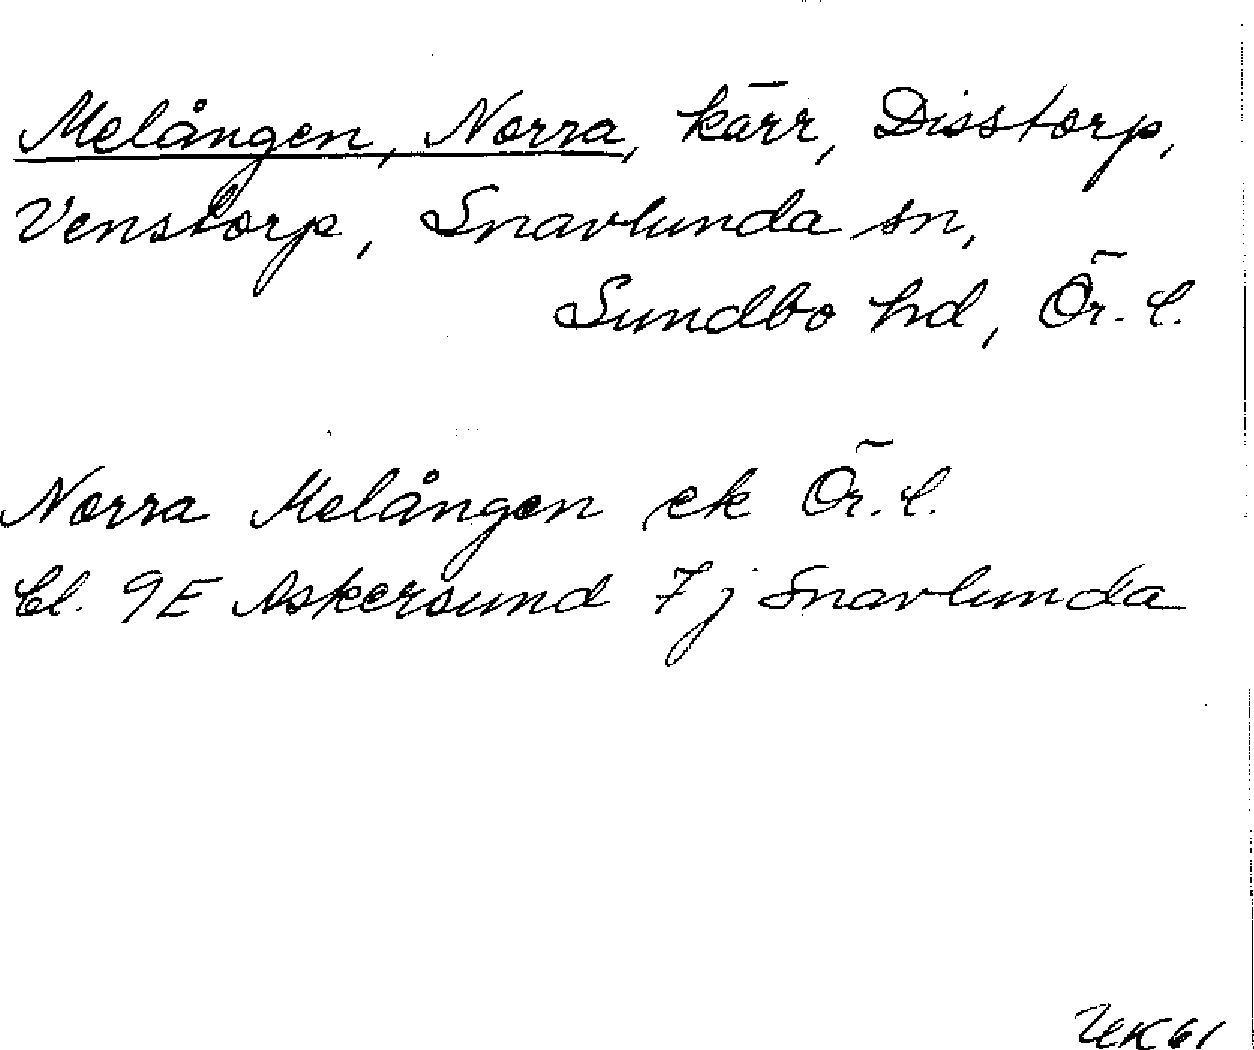 Melången, Norra, kärr, Disstorp,
Venstorp, Snavlunda sn,
Sundbo hd, Ör. l.
Norra Melången ek Ör. l.
bl. 9E Askersund 7j Snavlunda
61